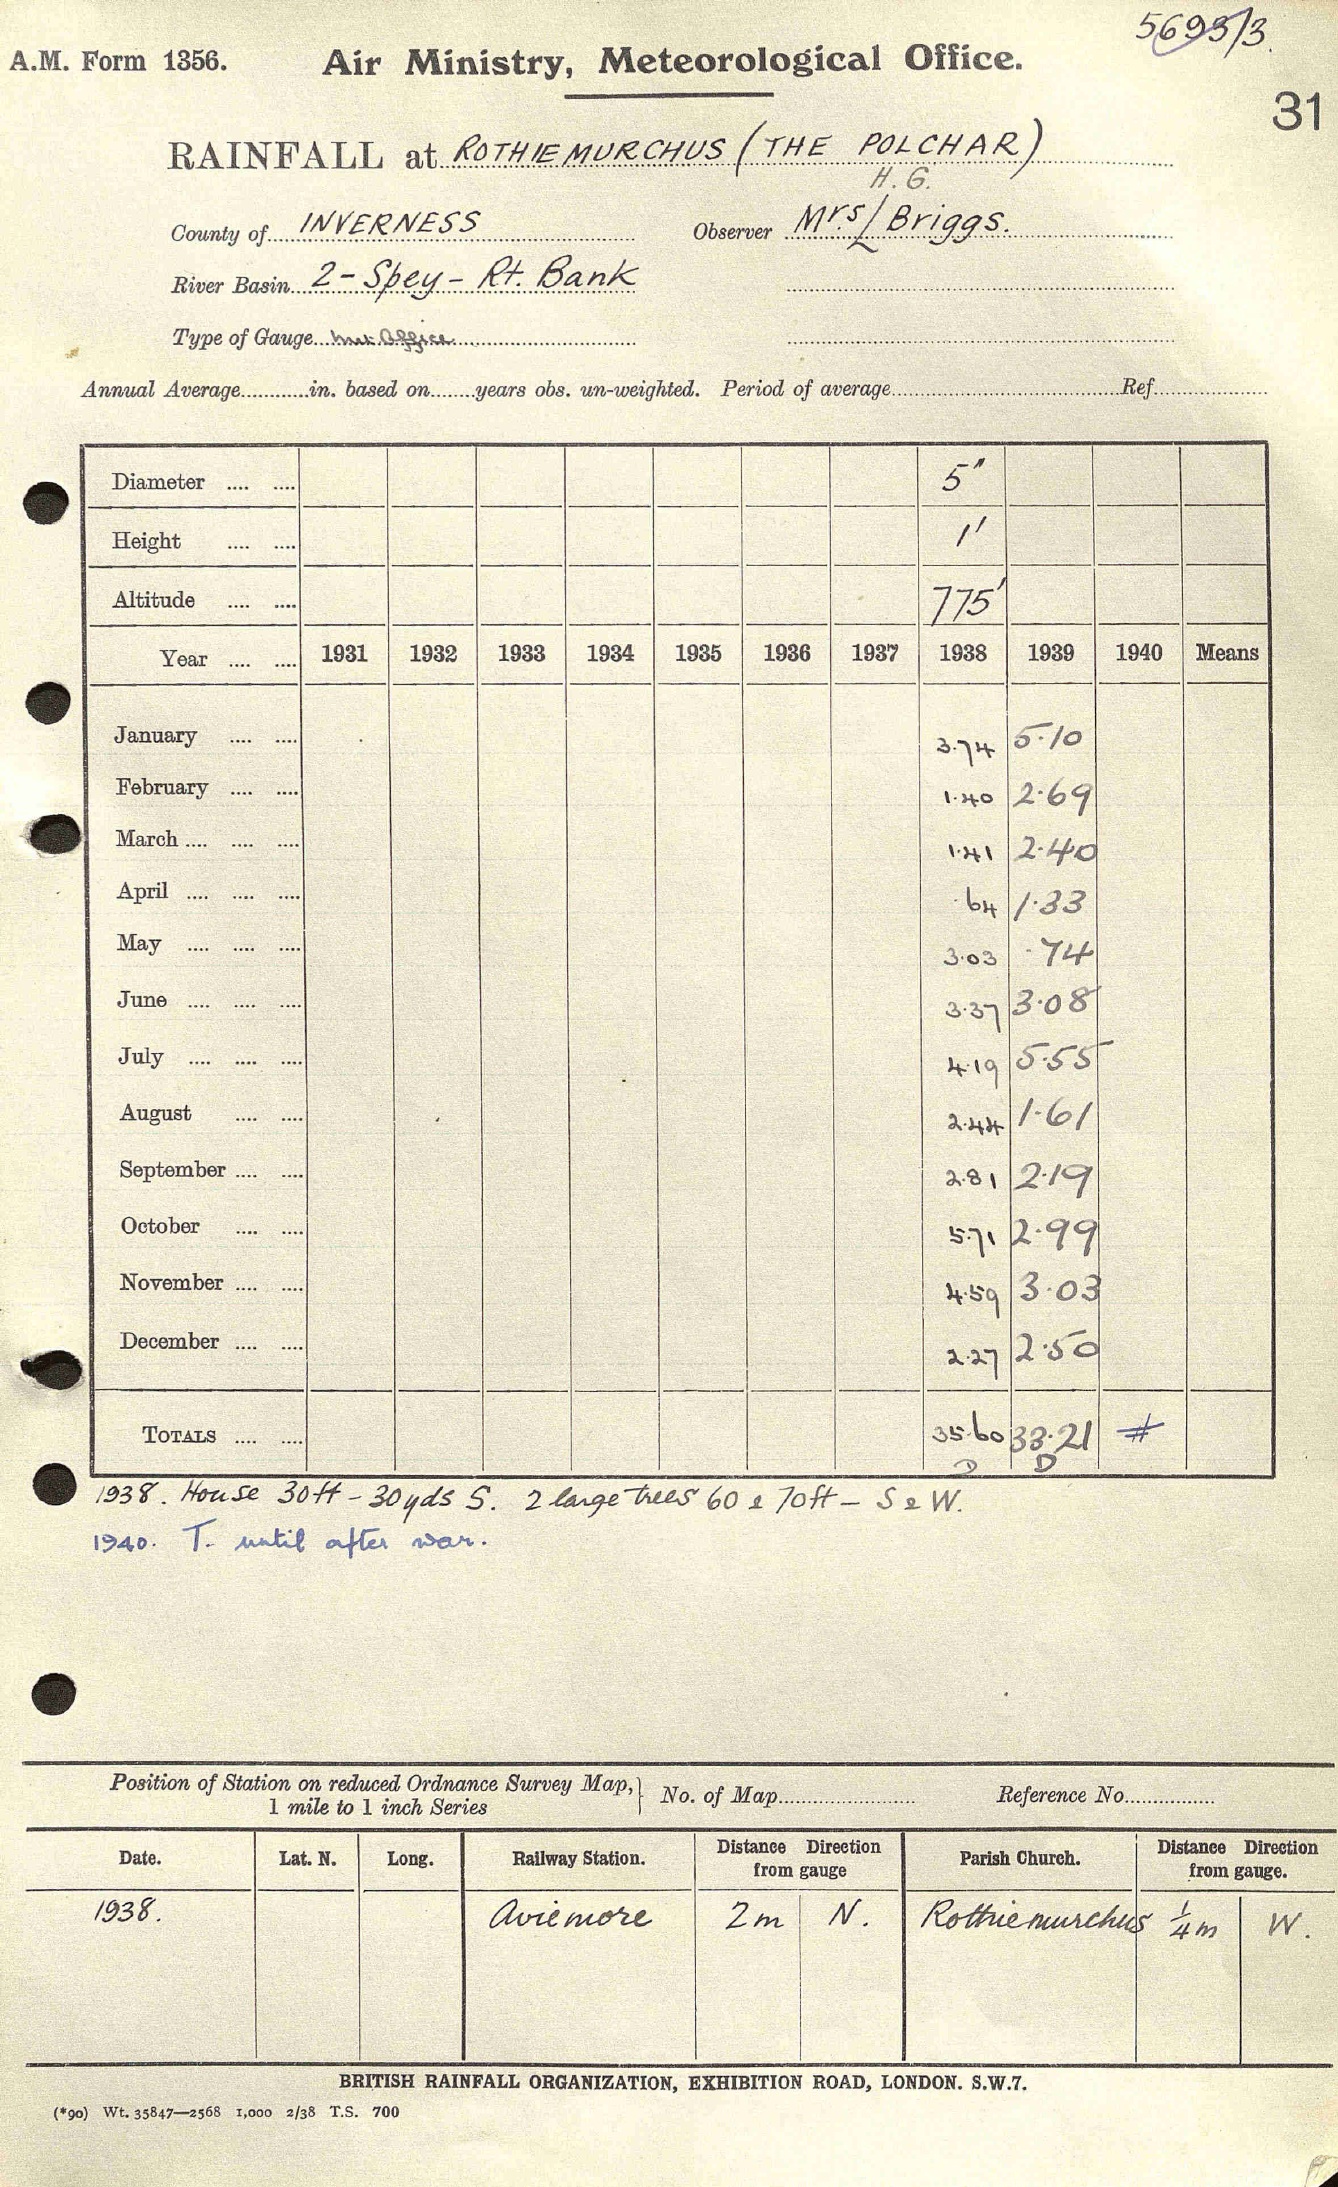 5693/3.
A.M. Form 1356. Air Ministry, Meteorological Office.
31
RAINFALL at ROTHIEMURCHUS (THE POLCHAR)
H. G.
County of INVERNESS Observer Mrs. / Briggs.
River Basin 2 - Spey - Rt. Bank
Type of Gauge Met. Office
Annual Average............in. based on........years obs. un-weighted. Period of average............Ref............
Diameter .... .... 5"
Height .... .... 1'
Altitude .... .... 775'
Year .... .... 1931 1932 1933 1934 1935 1936 1937 1938 1939 1940 Means
January .... .... 3.74 5.10
February .... .... 1.40 2.69
March .... .... .... 1.41 2.40
April .... .... .... .64 1.33
May .... .... .... 3.03 .74
June .... .... .... 3.37 3.08
July .... .... .... 4.19 5.55
August .... .... 2.44 1.61
September .... .... 2.81 2.19
October .... .... 5.71 2.99
November .... .... 4.59 3.03
December .... .... 2.27 2.50
TOTALS .... .... 35.60 33.21 #
D D
1938. House 30ft - 30yds S. 2 large trees 60 & 70ft - S & W.
1940. T. until after war.
Position of Station on reduced Ordnance Survey Map,} No. of Map............ Reference No............
1 mile to 1 inch Series
Date. Lat. N. Long. Railway Station. Distance Direction from gauge Parish Church. Distance Direction from gauge.
1938. Aviemore 2m N. Rothiemurchus 1/4 m W.
BRITISH RAINFALL ORGANIZATION, EXHIBITION ROAD, LONDON. S.W.7.
(*90) Wt. 35847—2568 1,000 2/38 T.S. 700